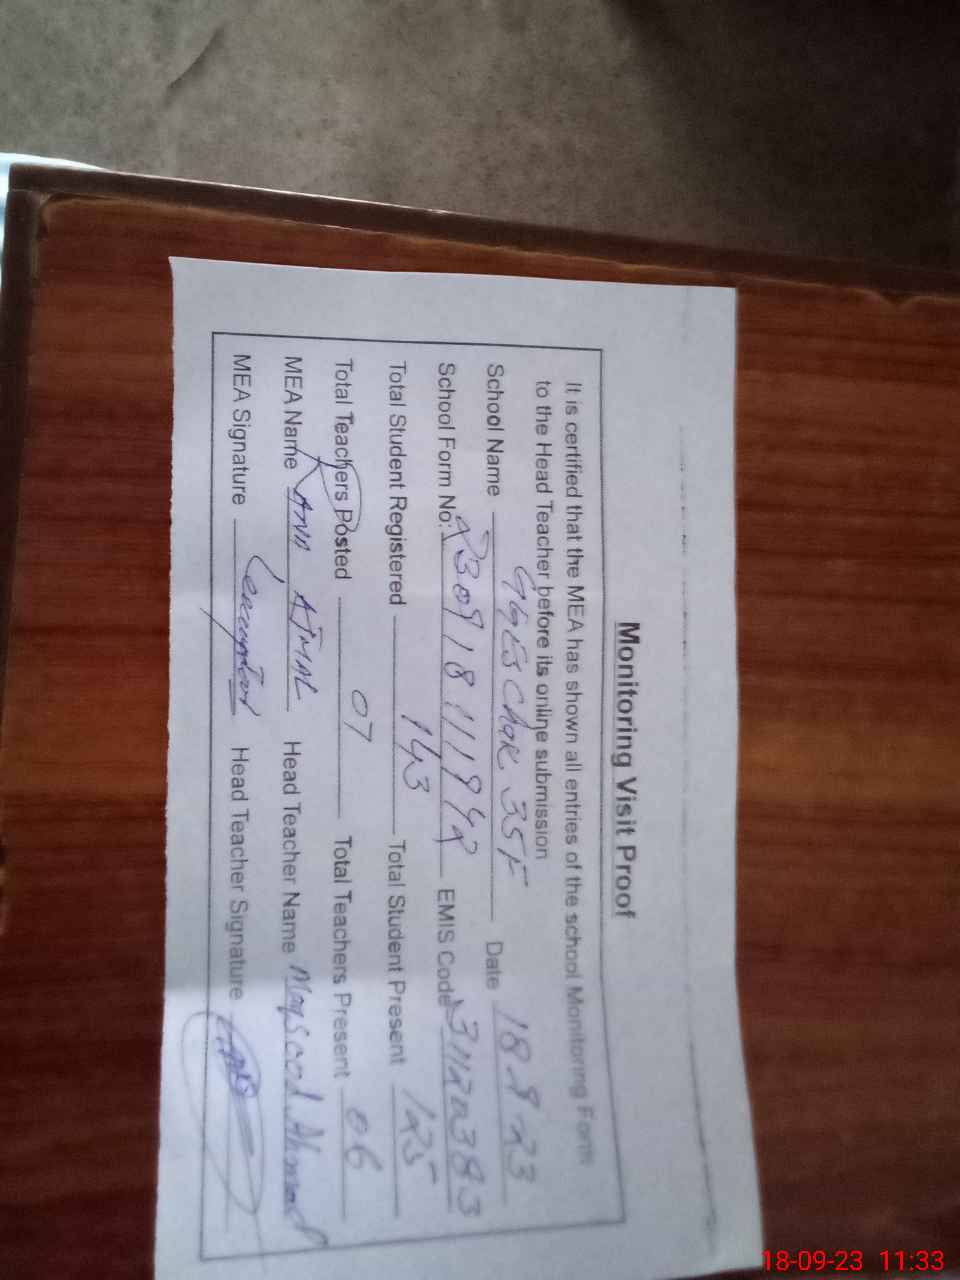 Monitoring Visit Proof
It is certified that the MEA has shown all entries of the school Monitoring Form
to the Head Teacher before its online submission
School Name GGES Chak 35F Date 18-9-23
School Form No: EMIS Code
Total Student Registered 143 Total Student Present 125
Total Teachers Posted 07 Total Teachers Present 06
MEA Name RANA AJMAL Head Teacher Name Maqsood Ahmad
MEA Signature Head Teacher Signature
18-09-23 11:33